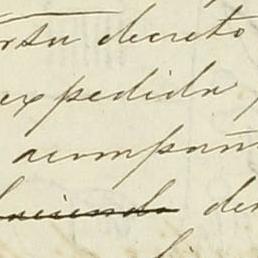 decreto
expedida
acompañ
haciendo de